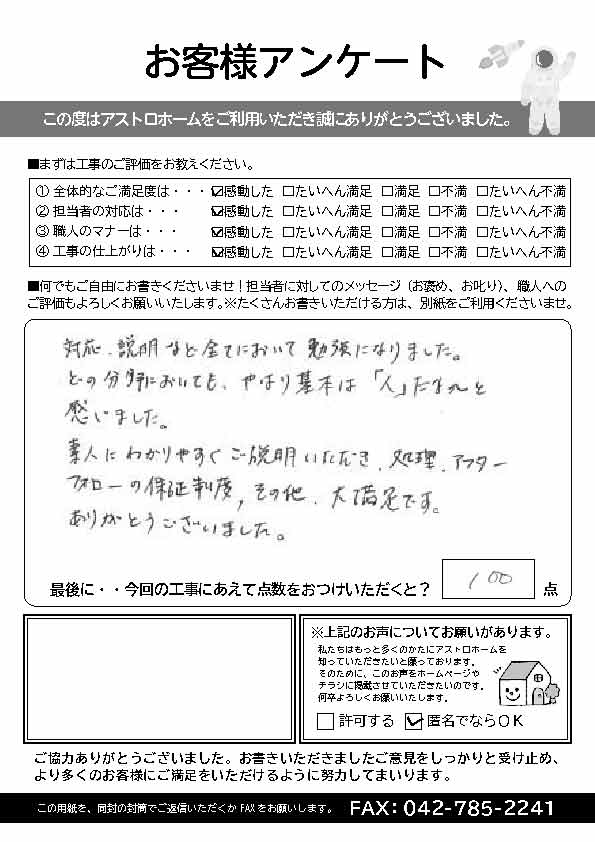 お客様アンケート
この度はアストロホームをご利用いただき誠にありがとうございました。
■まずは工事のご評価をお教えください。
① 全体的なご満足度は・・・ ☑感動した □たいへん満足 □満足 □不満 □たいへん不満
② 担当者の対応は・・・ ☑感動した □たいへん満足 □満足 □不満 □たいへん不満
③ 職人のマナーは・・・ ☑感動した □たいへん満足 □満足 □不満 □たいへん不満
④ 工事の仕上がりは・・・ ☑感動した □たいへん満足 □満足 □不満 □たいへん不満
■何でもご自由にお書きくださいませ！担当者に対してのメッセージ（お褒め、お叱り）、職人への
ご評価もよろしくお願いいたします。※たくさんお書きいただける方は、別紙をご利用くださいませ。
対応、説明など全てにおいて勉強になりました。
どの分野においても、やはり基本は「人」だなぁと
感いました。
素人にわかりやすくご説明いただき、処理、アフター
フォローの保証制度、その他、大満足です。
ありがとうございました。
最後に・・今回の工事にあえて点数をおつけいただくと？ 100 点
※上記のお声についてお願いがあります。
私たちはもっと多くのかたにアストロホームを
知っていただきたいと願っております。
そのために、このお声をホームページや
チラシに掲載させていただきたいのです。
何卒よろしくお願いいたします。
□ 許可する ☑ 匿名でならＯＫ
ご協力ありがとうございました。お書きいただきましたご意見をしっかりと受け止め、
より多くのお客様にご満足をいただけるように努力してまいります。
この用紙を、同封の封筒でご返信いただくか FAX をお願いします。 FAX: 042-785-2241